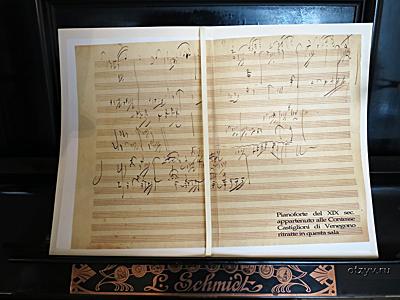 Pianoforte del XIX sec.
appartenuto alle Contesse
Castiglioni di Venegono
ritratte in questa sala
L. Schmidt
otzyv.ru